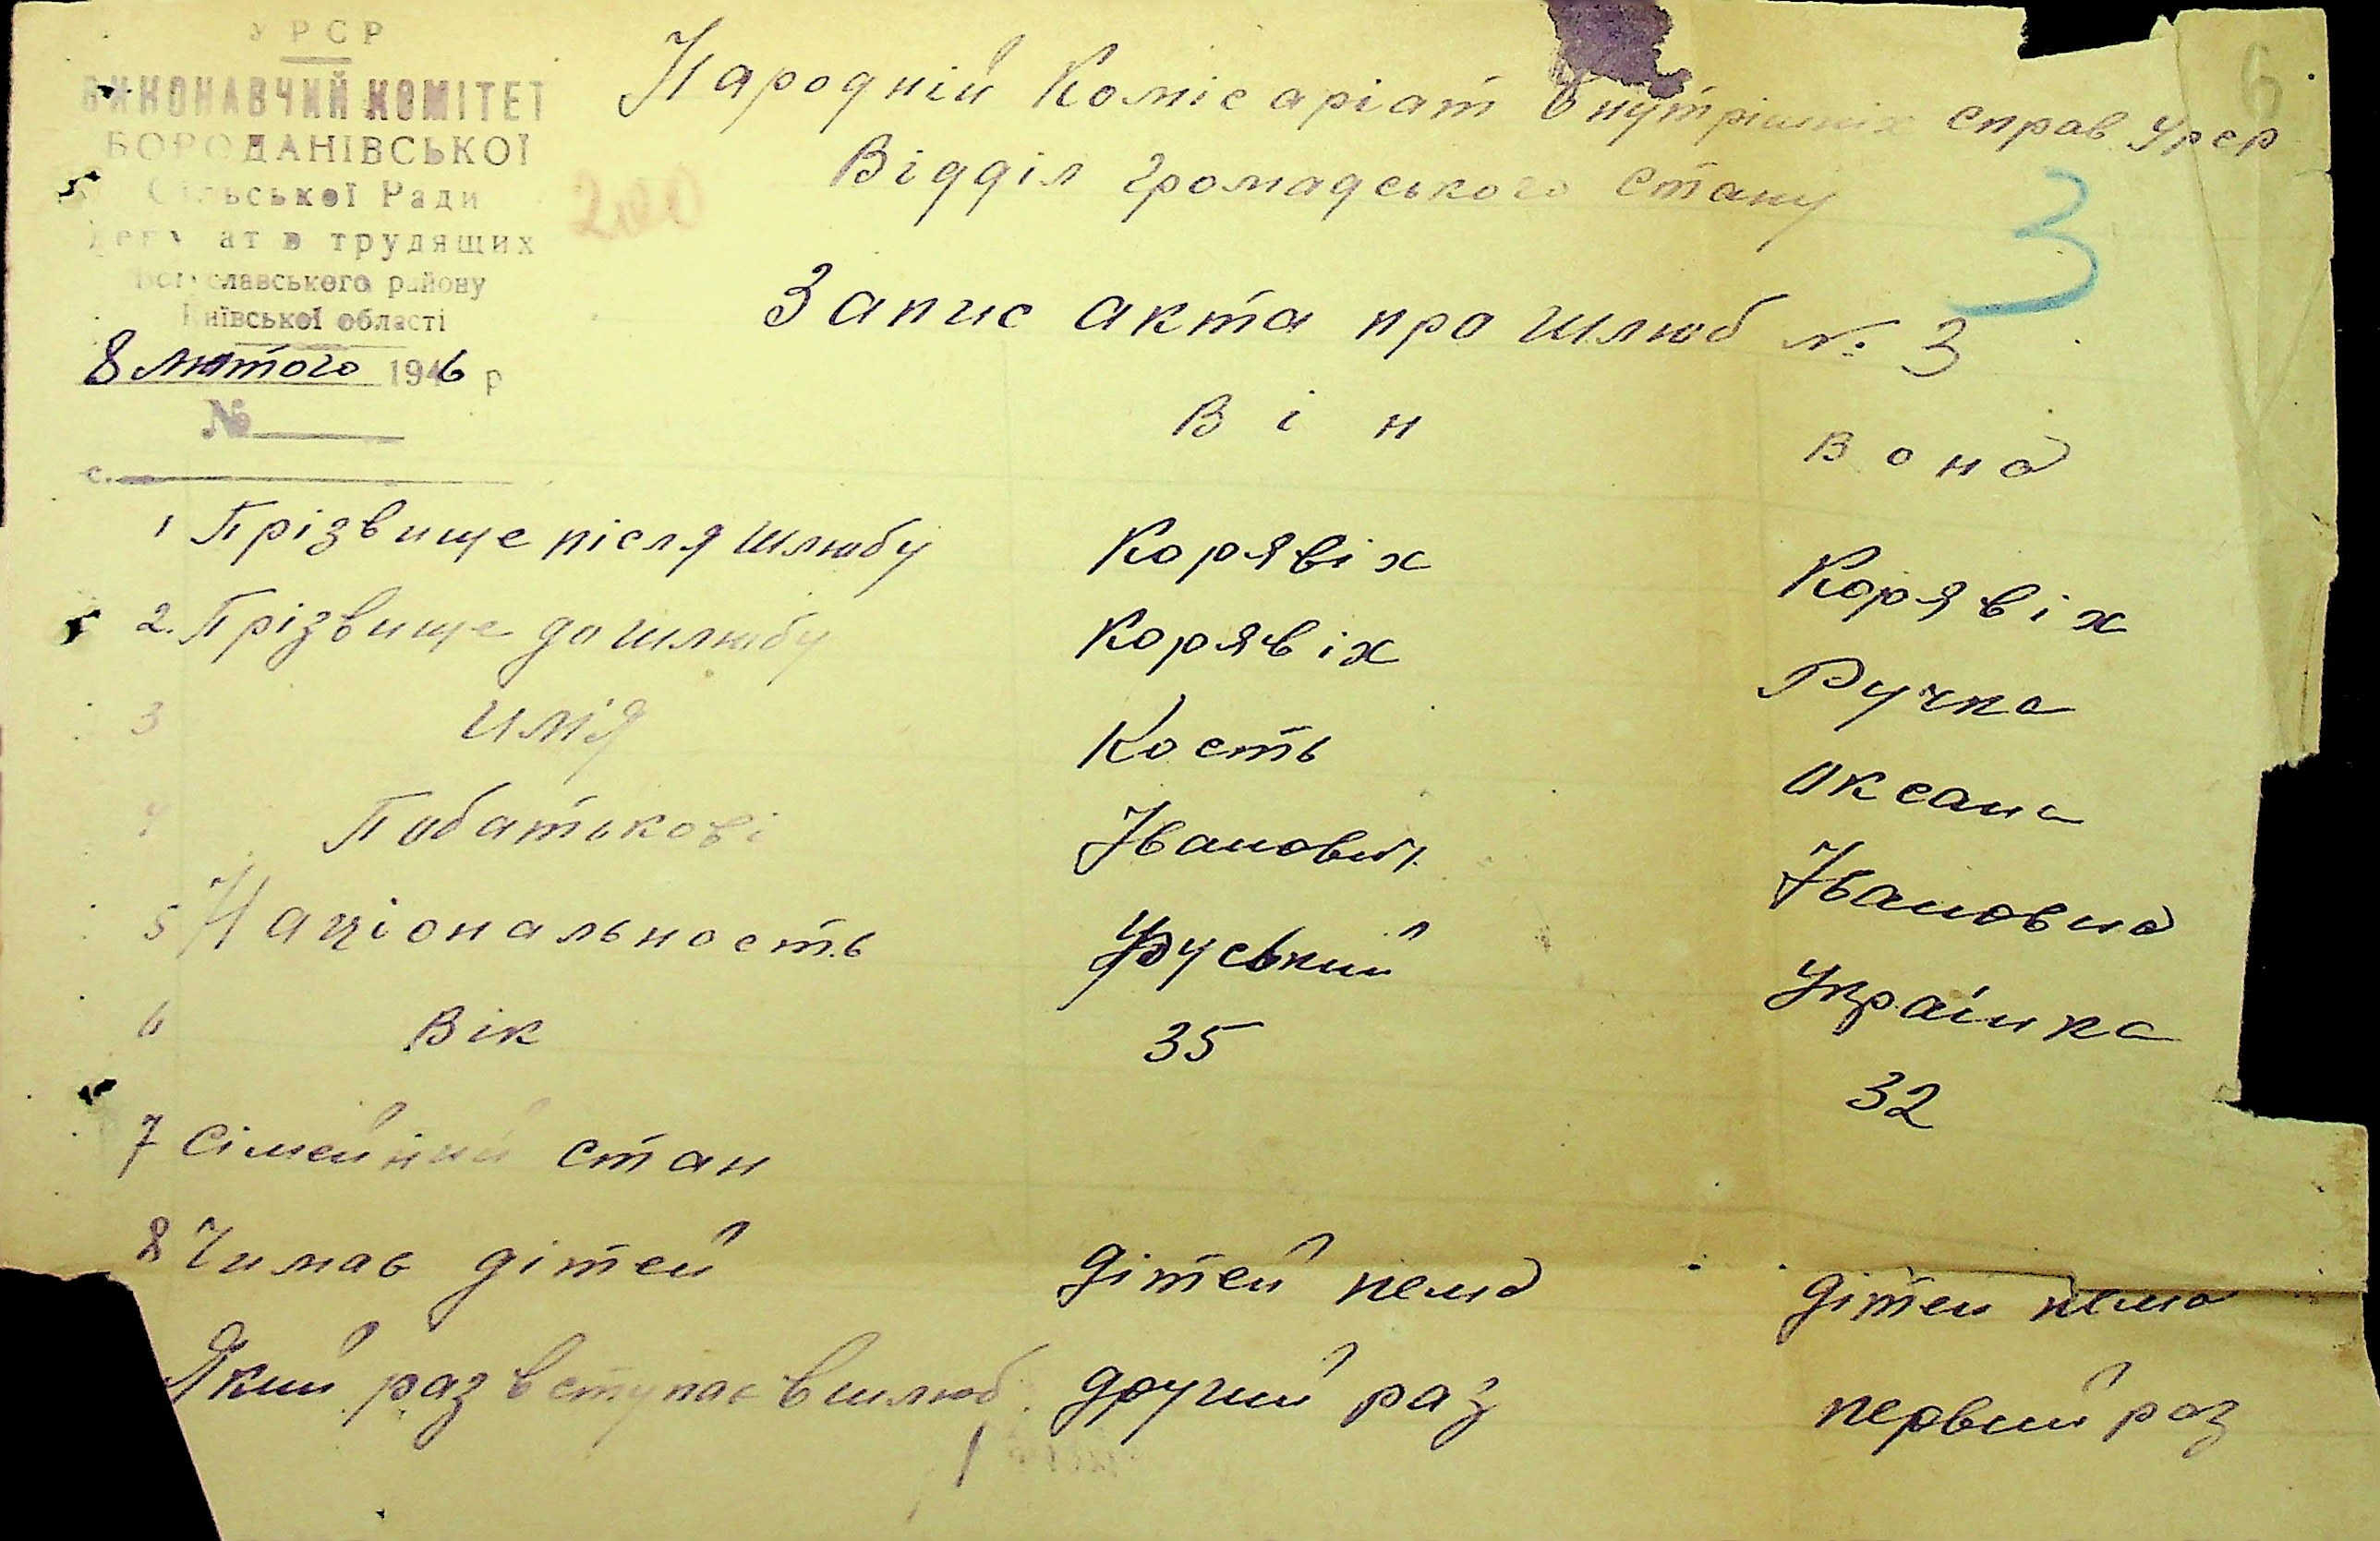 УРСР
ВИКОНАВЧИЙ КОМІТЕТ
БОРОДАНІВСЬКОЇ
Сільської Ради
Депутатів трудящих
Богуславського району
Київської області
8 лютого 1946 р
№
с.
200
6
3
Народній Комісаріат Внутрішніх справ УРСР
Відділ Громадського Стану
Запис акта про шлюб № 3
Він Вона
1 Прізвище після шлюбу Корявіх Корявіх
2. Прізвище до шлюбу Корявіх Ручка
3 Имія Кость Оксана
4 Побатькові Іванович Івановна
5 Національность Руський Українка
6 Вік 35 32
7 Сімейний стан
8 Чи має дітей Дітей нема Дітей нема
Який раз вступає в шлюб другий раз первий раз